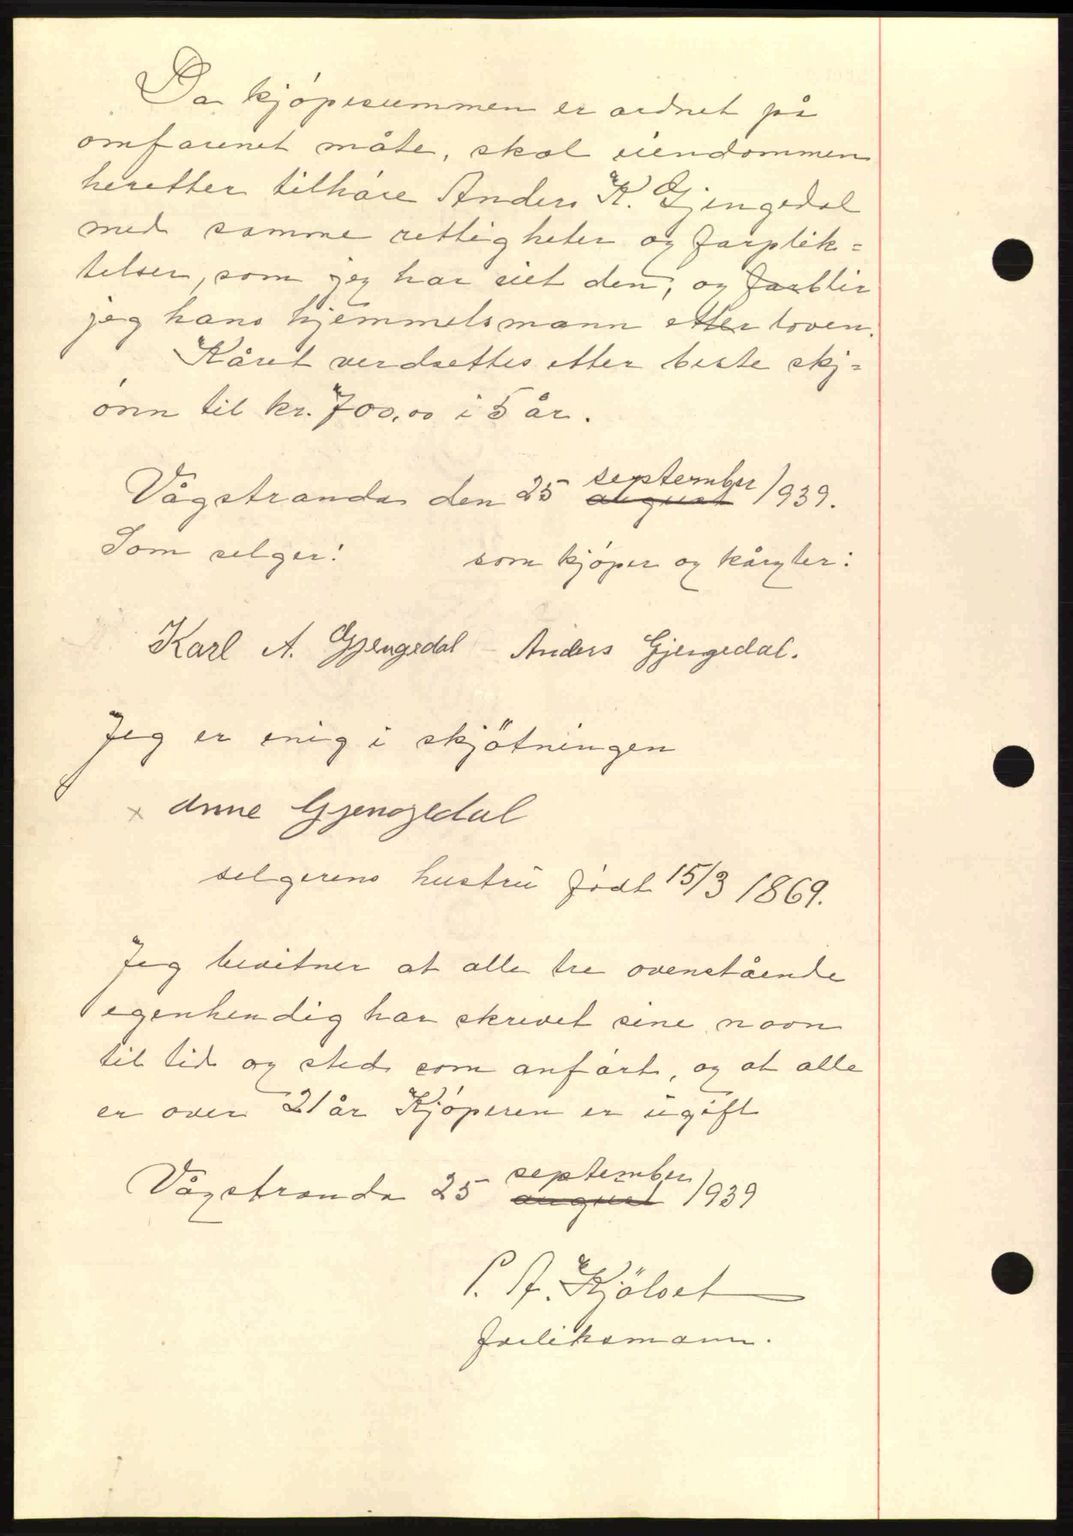 Da kjöpesummen er ordnet på
omforenet måte, skal eiendommen
heretter tilhöre Anders K. Gjengedal
med samme rettigheter og forplik=
telser, som jeg har eiet den, og forblir
jeg hans hjemmelsmann etter loven.
Kåret verdsettes etter beste skj=
önn til kr. 700,00 i 5 år.
Vågstranda den 25 september 1939.
august
Som selger: som kjöper og kåryter:
Karl A. Gjengedal Anders Gjengedal.
Jeg er enig i skjötningen
x Anne Gjengedal
selgerens hustru födt 15/3 1869.
Jeg bevitner at alle tre ovenstående
egenhendig har skrevet sine navn
til tid og sted som anfört, og at alle
er over 21 år Kjöperen er ugift
Vågstranda 25 september 1939
august
P. A. Kjölset
forliksmann.